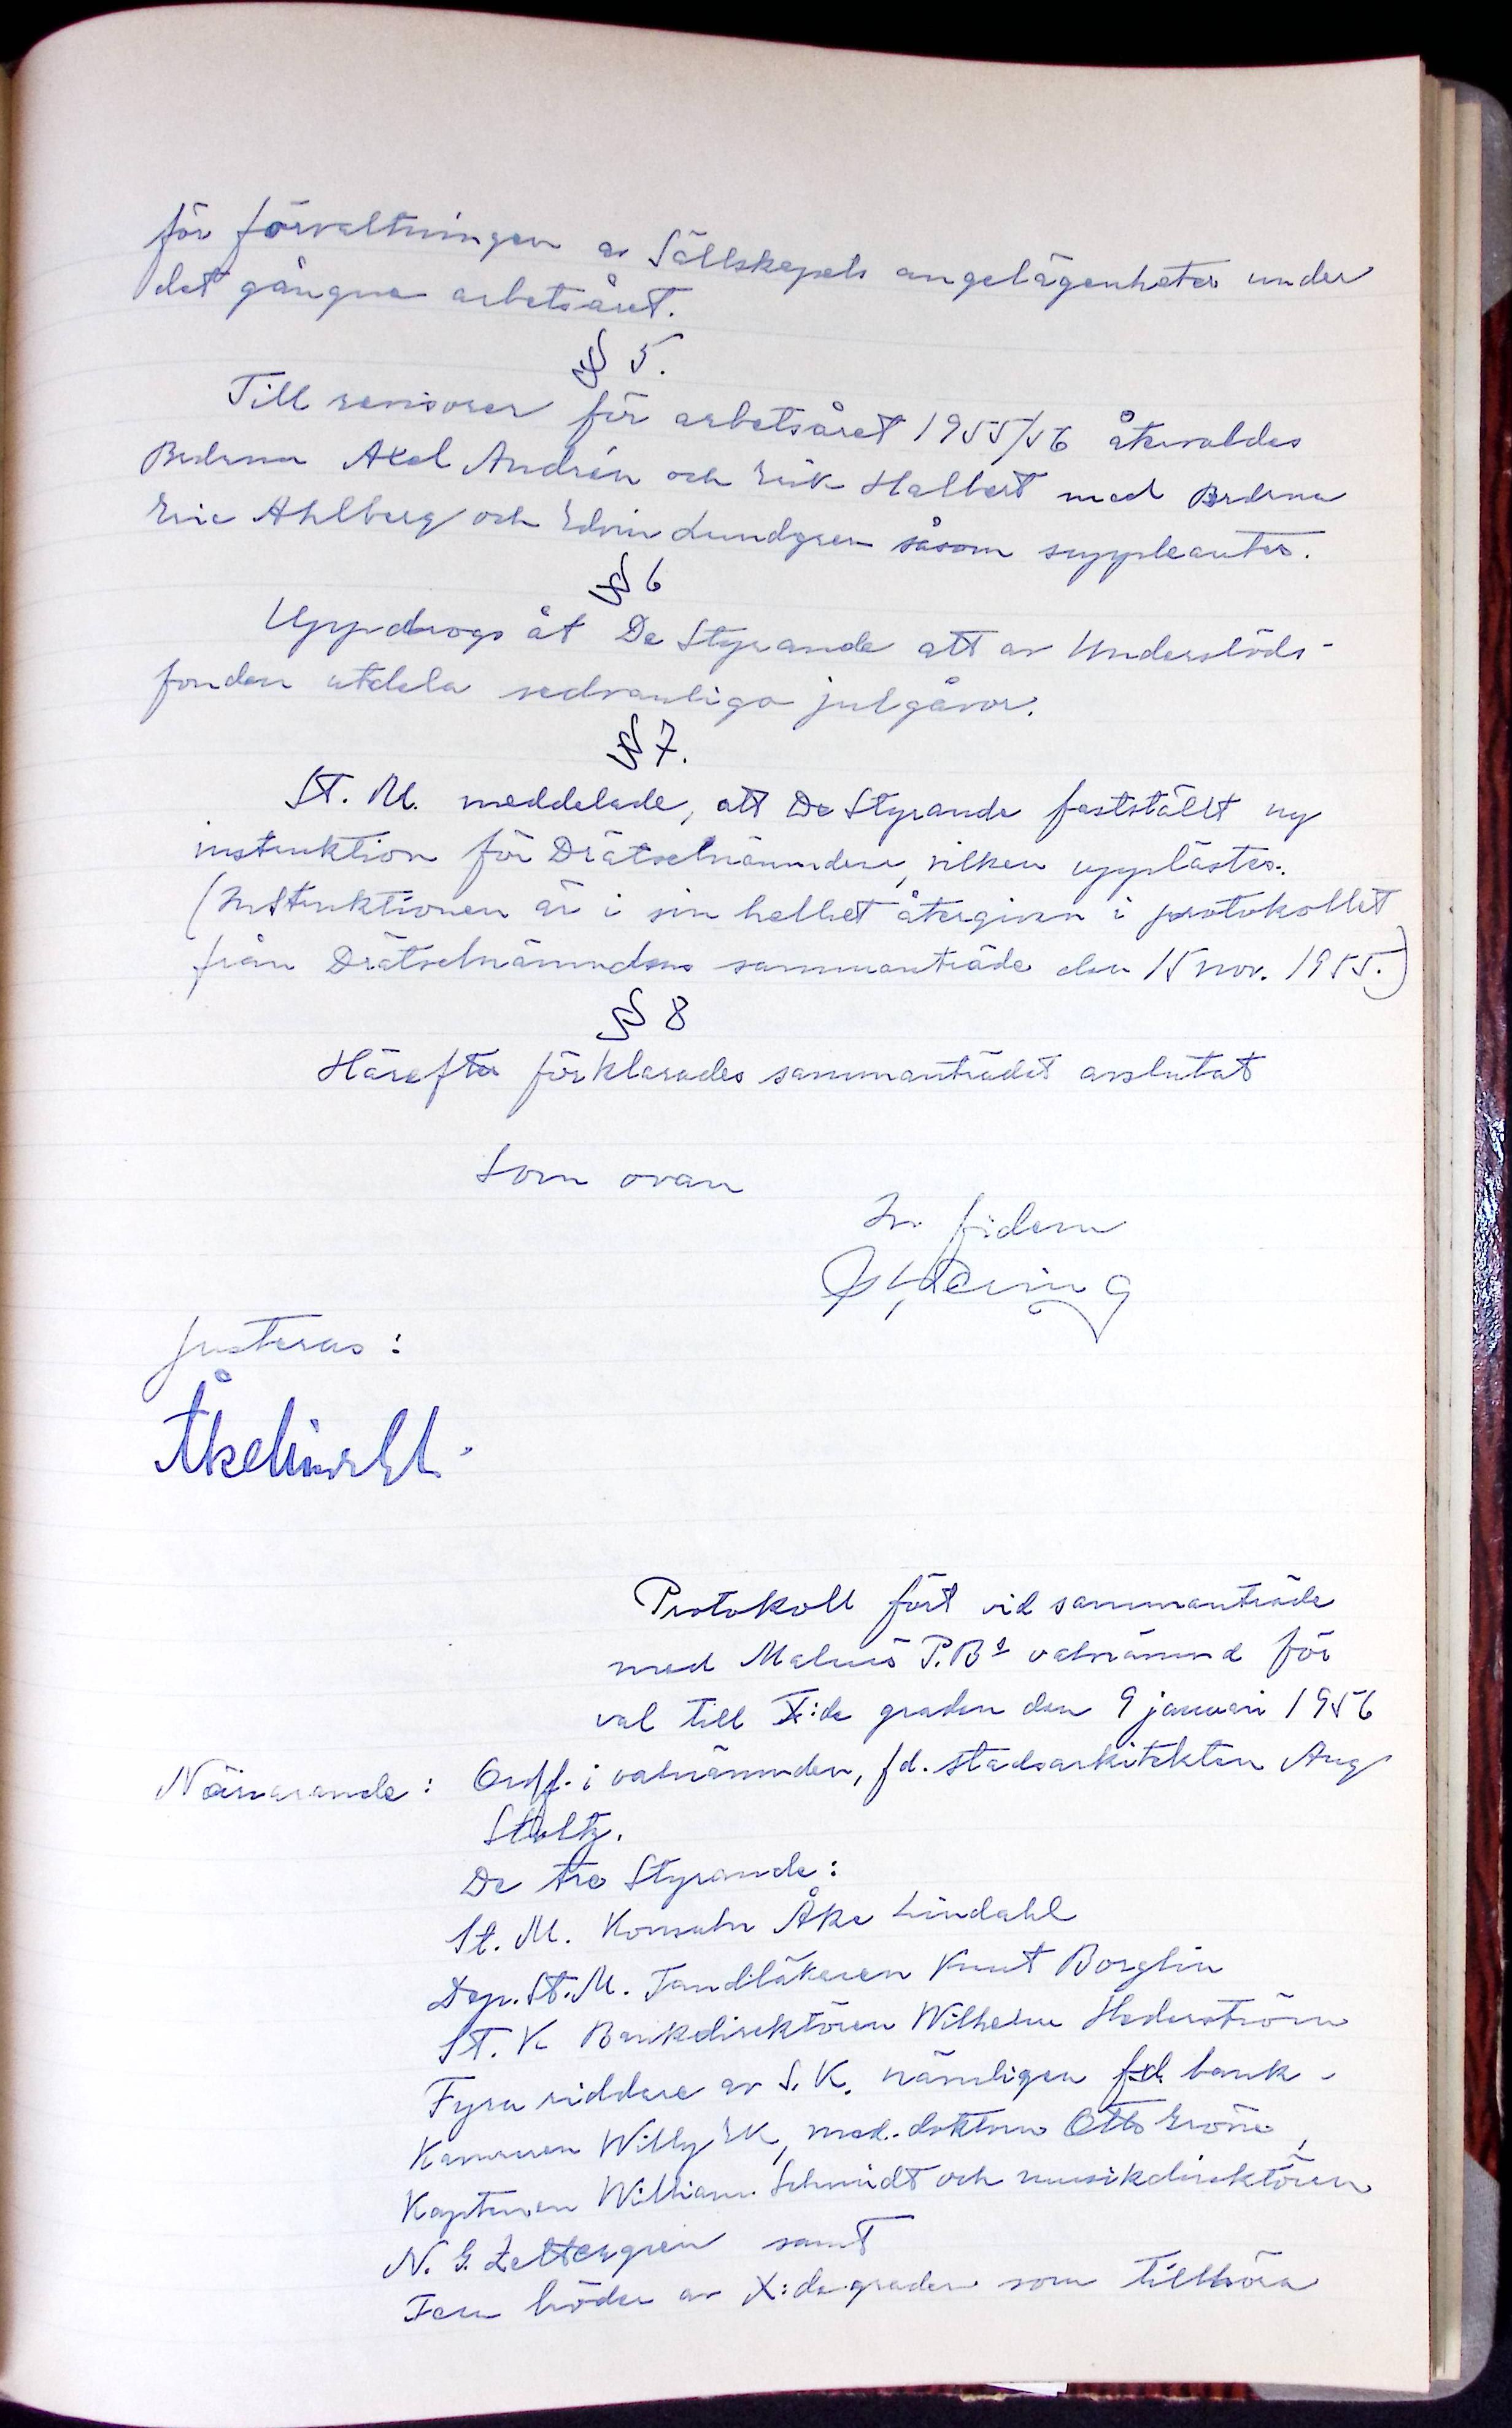 för förvaltningen av Sällskapets angelägenheter under
det gångna arbetsåret.
§ 5.
Till revisorer för arbetsåret 1955/56 återvaldes
Brdrna Axel Andrén och Erik Halbert med Brdrna
Eric Ahlberg och Edvin Lundgren såsom suppleanter.
§ 6
Uppdrogs åt De Styrande att av Understöds-
fonden utdela sedvanliga julgåvor.
§ 7.
St. M. meddelade, att De Styrande fastställt ny
instruktion för Drätselnämnden, vilken upplästes.
(Instruktionen är i sin helhet återgiven i protokollet
från Drätselnämndens sammanträde den 15 nov. 1955.)
§ 8
Härefter förklarades sammanträdet avslutat
Som ovan
In fidem
Justeras:
Åke Lindahl
Protokoll fört vid sammanträde
med Malmö P.B:s valnämnd för
val till X:de graden den 9 januari 1956
Närvarande: Ordf. i valnämnden, fd. stadsarkitekten Aug
Stoltz.
De tre Styrande:
St. M. Konsuln Åke Lindahl
Dep. St. M. Tandläkaren Knut Borglin
St. K Bankdirektören Wilhelm Hederström
Fyra riddare av S. K. nämligen fd. bank-
kamreren Willy Ek, med. doktorn Otto Gröné,
Kaptenen William Schmidt och musikdirektören
N. G. Zettergren samt
Fem bröder av X:de graden som tillhöra